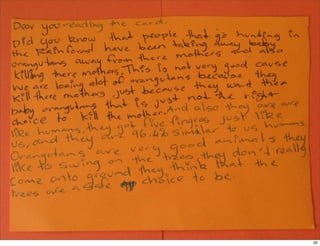 Dear you reading the card.
Did you know that people that go hunting in
the Rainforest have been taking away baby
orangutans away from there mothers and also
killing there mothers. This is not very good cause
we are losing alot of orangutans because they
kill there mothers just because they want then
baby orangutans that is just not the right
choice to kill the mother. And also they are are
like humans, they got five fingres just like
us, and they are 96.4% similar to us humans.
Orangutans are very good animals they
like to swing on the trees they don't really
come onto ground they think that the
trees are a safe choice to be.